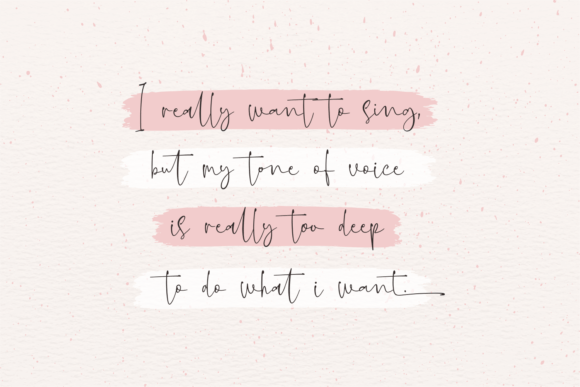 I really want to sing,
but my tone of voice
is really too deep
to do what i want.